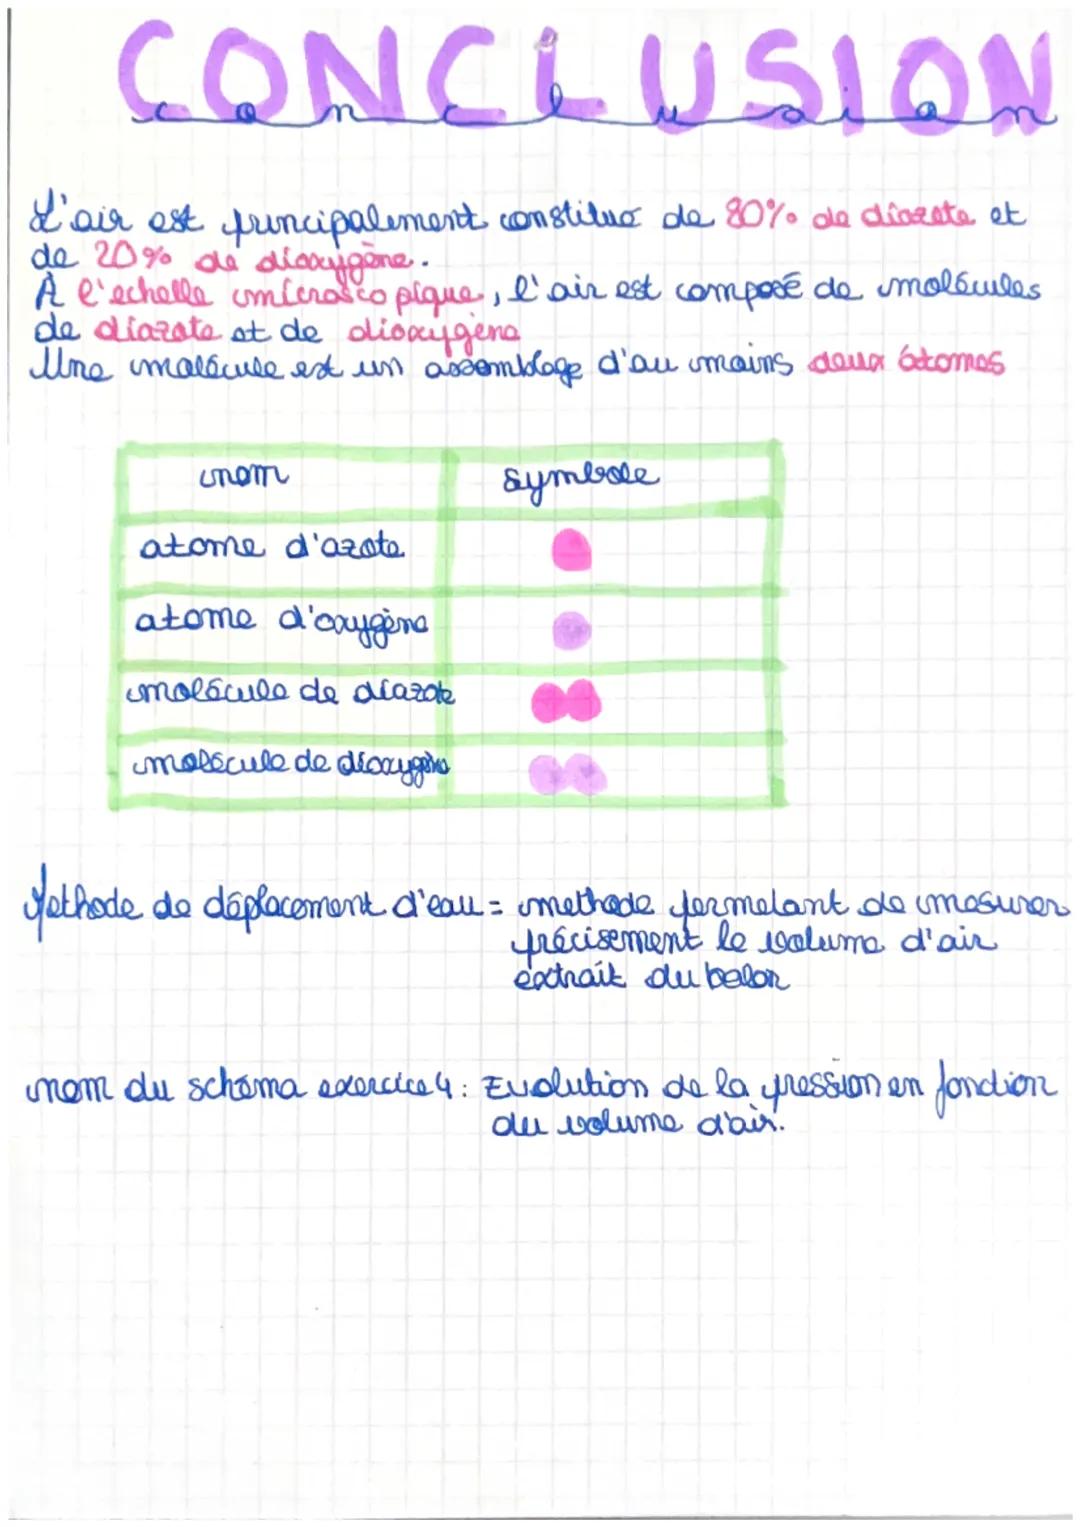 CONCLUSION
conclusion
L'air est principalement constitué de 80% de diazote et
de 20% de dioxygène.
À l'echelle microscopique, l'air est composé de molécules
de diazote et de dioxygène
Une molécule est un assemblage d'au moins deux atomes
nom symbole
atome d'azote
atome d'oxygène
molécule de diazote
molécule de dioxygène
Methode de déplacement d'eau = methode permetant de mesurer
précisement le volume d'air
extrait du balon
nom du schéma exercice 4 : Evolution de la pression en fonction
du volume d'air.